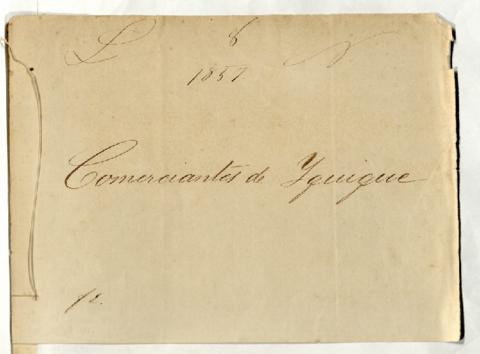 L 8
1857
Comerciantes de Yquique